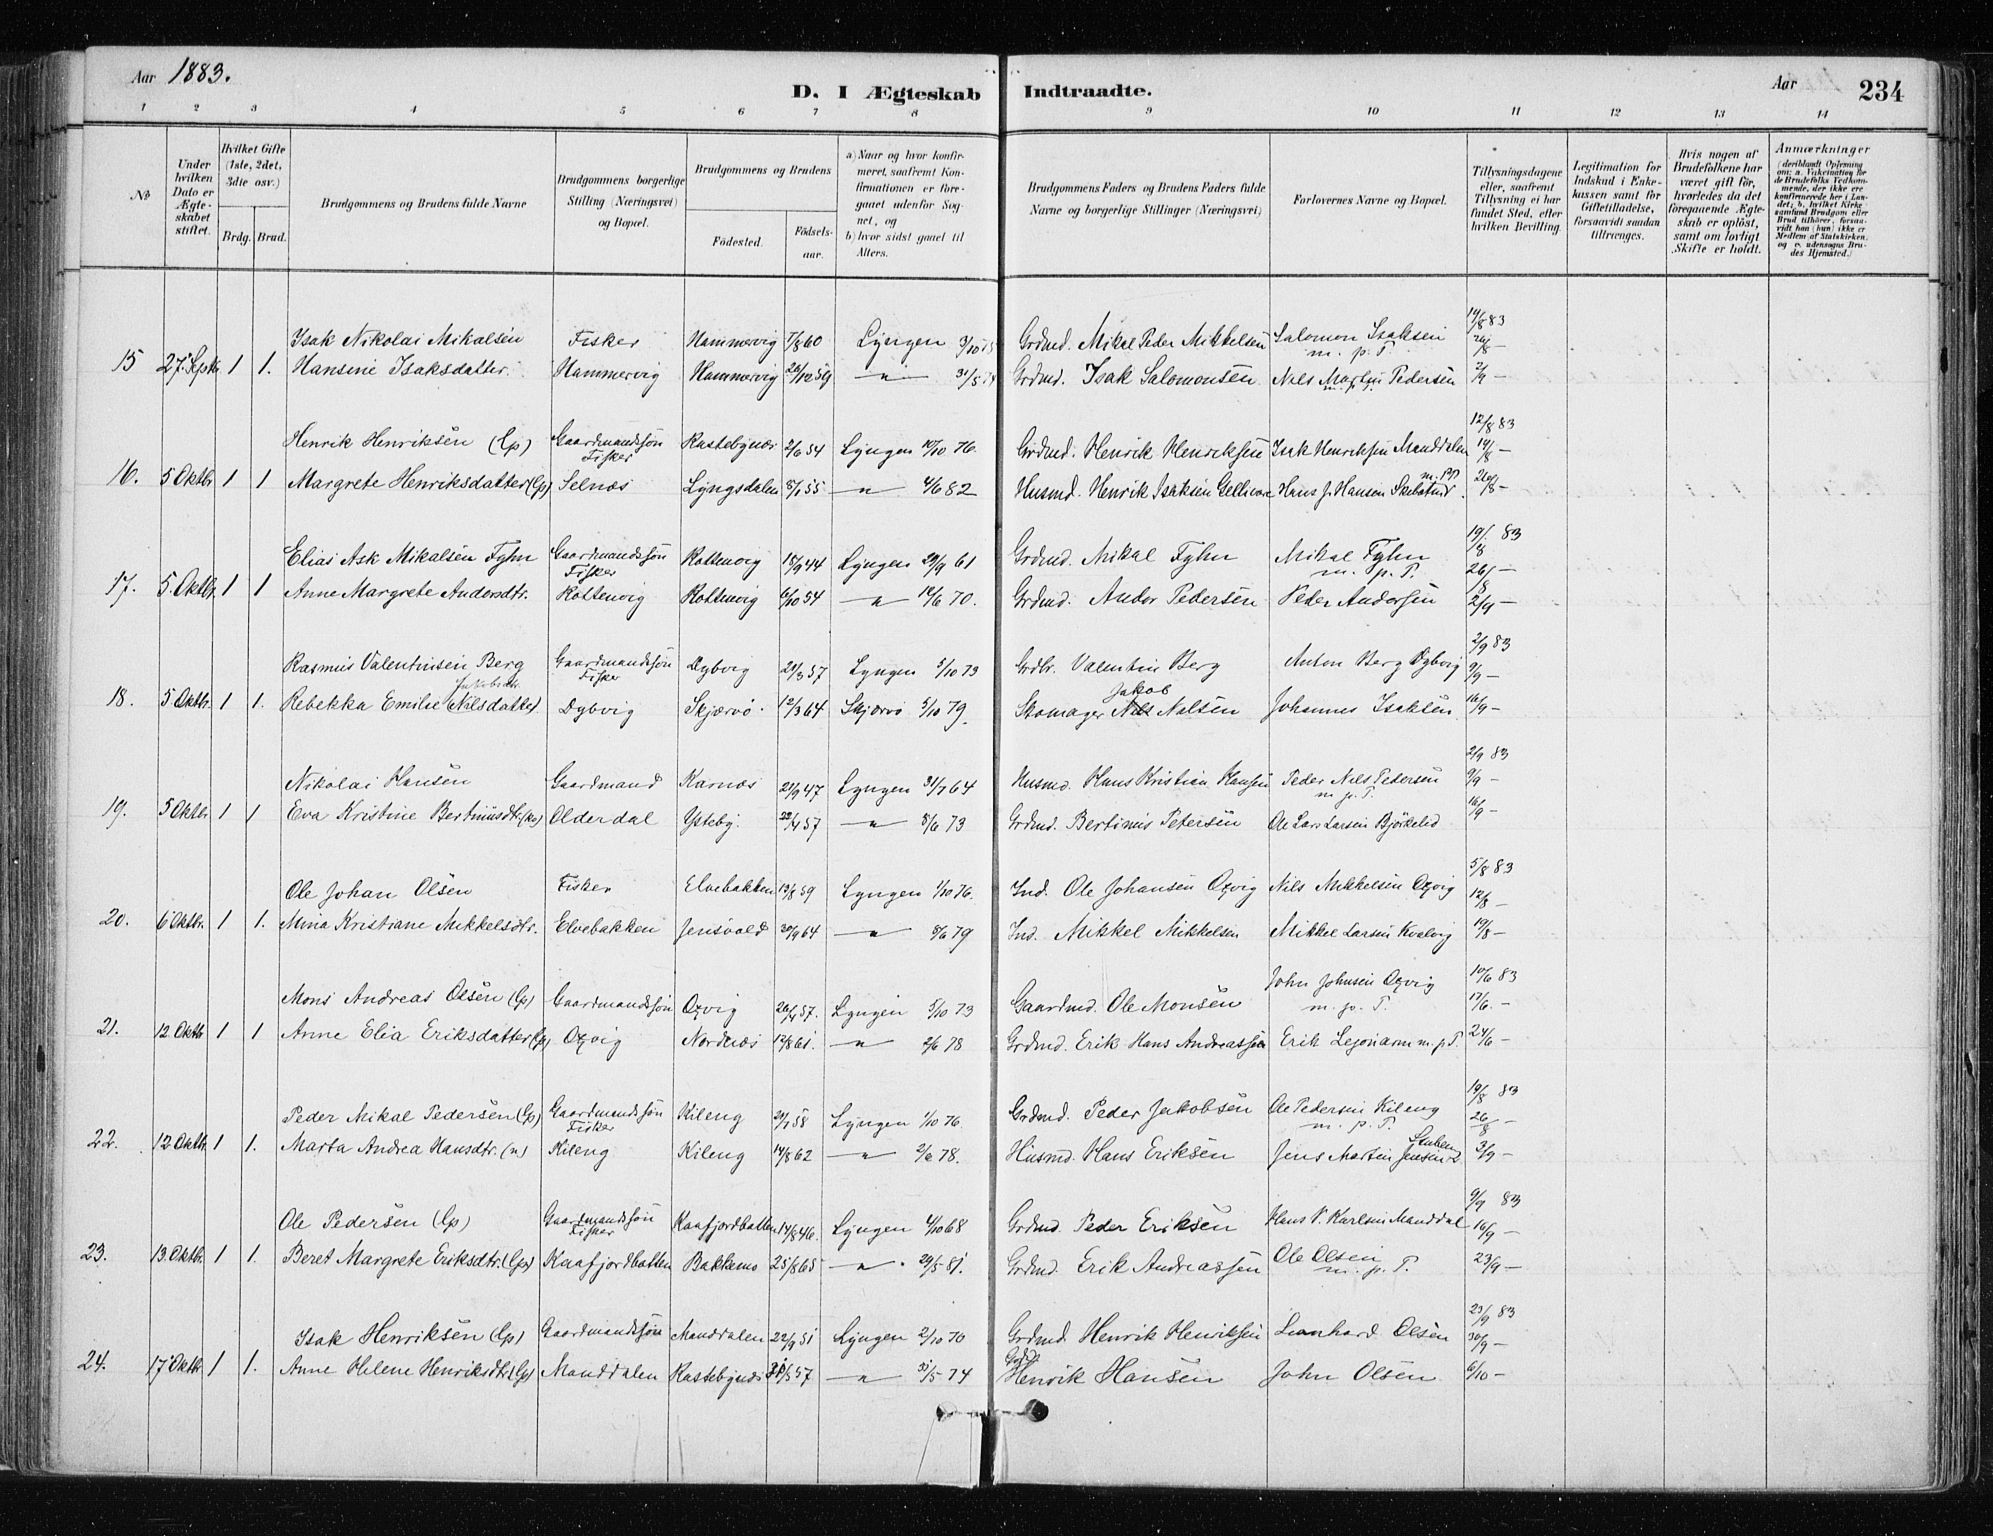 Aar 1883.
D. I Ægteskab Indtraadte.
Aar 234
1 2 3 4 5 6 7 8 9 10 11 12 13 14
№
Under hvilken Dato er Ægteskabet stiftet.
Hvilket Gifte (1ste, 2det, 3die osv.)
Brdg. Brud.
Brudgommens og Brudens fulde Navne
Brudgommens borgerlige Stilling (Næringsvei) og Bopæl.
Brudgommens og Brudens
Fødested.
Fødselsaar.
a) Naar og hvor konfirmeret, saafremt Konfirmationen er foregaaet udenfor Sognet, og
b) hvor sidst gaaet til Alters.
Brudgommens Faders og Brudens Faders fulde Navne og borgerlige Stillinger (Næringsvei)
Forlovernes Navne og Bopæl.
Tillysningsdagene eller, saafremt Tillysning ei har fundet Sted, efter hvilken Bevilling.
Legitimation for Indskud i Enkekassen samt for Giftetilladelse, forsaavidt saadan tiltrænges.
Hvis nogen af Brudefolkene har været gift før, hvorledes da det foregaaende Ægteskab er opløst, samt om lovligt Skifte er holdt.
Anmærkninger (deriblandt Oplysning om: a. Vakcination for de Brudefolks Vedkommende, der ikke ere konfirmerede her i Landet; b. hvilket Kirkesamfund Brudgom eller Brud tilhører, forsaavidt han (hun) ikke er Medlem af Statskirken, og c. udensogns Brudes Hjemsted.)
Isak Nikolai Mikalsen Fisker Hammervig 7/8 60 Lyngen Grdmd. Mikal Peder Mikkelsen Salomon Isaksen 19/8 83
m. p. P. 26/8
15 27 Septbr. 1 1. Hansine Isaksdatter. Hammervig Hammervig 59 — " — 31/5 74 Grdmd. Isak Salomonsen Nils Martin Pedersen 2/9 —
m. p. P.
Henrik Henriksen (Lp) Gaardmandssøn Rastebynæs 2/6 54 Lyngen 76. Grdmd. Henrik Henriksen Isak Henriksen Manddalen 12/8 83
Fisker 19/8 —
16. 5 Oktbr 1 1 Margrete Henriksdatter (Lp) Selnæs Lyngsdalen 8/1 55 — " — 4/6 82 Husmd. Henrik Isaksen Gellivare Hans J. Hansen m. p. P. 26/8 —
Elias Ask Mikalsen Fyhn Gaardmandssøn Rottenvig 18/9 44 Lyngen 29/9 61 Grdmd. Mikal Fyhn Mikal Fyhn 19/8 83
Fisker m. p. P. 26/8 —
17. 5. Oktbr. 1 1 Anne Margrete Andersdtr. Rottenvig Rottenvig 6/10 54 — " — 70. Grdmd. Andor Pedersen Peder Andersen 2/9 —
Rasmus Valentinsen Berg Gaardmandssøn Dybvig 57 Lyngen 5/10 73 Grdbr. Valentin Berg Anton Berg Dybvig 2/9 83
Jakobsdtr. Fisker Jakob 9/9 —
18. 5 Oktbr. 1 1. Rebekka Emilie (Nilsdatter) Dybvig Skjærvø. 12/3 64 Skjærvø 5/10 79. Skomager Nils Nilsen Johannes Isaksen 16/9 —
Nikolai Hansen Gaardmand Karnæs 47 Lyngen 31/7 64 Husmd. Hans Kristian Hansen Peder Nils Pedersen 2/9 83
m. p. P. 9/9 —
19. 5 Oktbr 1 1 Eva Kristine Bertinusdtr. Olderdal Ysteby. 57 — " — 8/6 73 Grdmd. Bertinus Petersen Ole Lars Larsen Bjørkelid 16/9 —
Ole Johan Olsen Fisker Elvebakken 13/8 59 Lyngen 1/10 76. Ind. Ole Johansen Oxvig Nils Mikkelsen Oxvig 5/8 83
12/8 —
20. 6 Oktbr. 1 1. Mina Kristiane Mikkelsdtr. Elvebakken Jensvold 30/9 64 — " — 8/6 79 Ind. Mikkel Mikkelsen Mikkel Larsen Kvalvig 19/8 —
Mons Andreas Olsen (Lp) Gaardmandssøn Oxvig 57. Lyngen 5/10 73 Gaardmd. Ole Monsen John Johnsen Oxvig 10/6 83
m. p. P. 17/6. —
21. 12 Oktbr 1 1 Anne Elia Eriksdatter (Lp) Oxvig Nordnæs 12/8 61. — " — 2/6 78 Grdmd. Erik Hans Andreassen Erik m. p. P. 24/6 —
Peder Mikal Pedersen (Lp) Gaardmandssøn Kileng 58 Lyngen 1/10 76. Grdmd. Peder Jakobsen Ole Pedersen Kileng 19/8 83
Fisker m. p. P. 26/8 —
22. 12 Oktbr. 1 1. Marta Andrea Hansdtr. (n) Kileng Kileng 14/8 62 — " — 2/6 78. Husmd. Hans Eriksen Jens Martin Jensen 3/9 —
Ole Pedersen (Lp) Gaardmandssøn Kaafjordbotten 14/8 46. Lyngen 4/10 68 Grdmd. Peder Eriksen Hans P. Karlsen Manddal 9/9 83
Fisker 16/9 —
23. 13. Oktbr. 1 1. Beret Margrete Eriksdtr. (Lp) Kaafjordbotten Bakkemo 25/8 65 — " — 29/5 81. Grdmd. Erik Andreassen Ole Olsen 23/9 —
m. p. P.
Isak Henriksen (Lp) Gaardmandssøn Manddalen 22/9 51 Lyngen 2/10 70 Grdmd. Henrik Henriksen Leonhard Olsen 23/9 83
30/9 —
24. 17 Oktbr 1 1. Anne Helene Henriksdtr. (Lp) Manddalen Rastebynæs 31/5 57 — " — 31/5 74 Henrik Hansen John Olsen 6/10 —